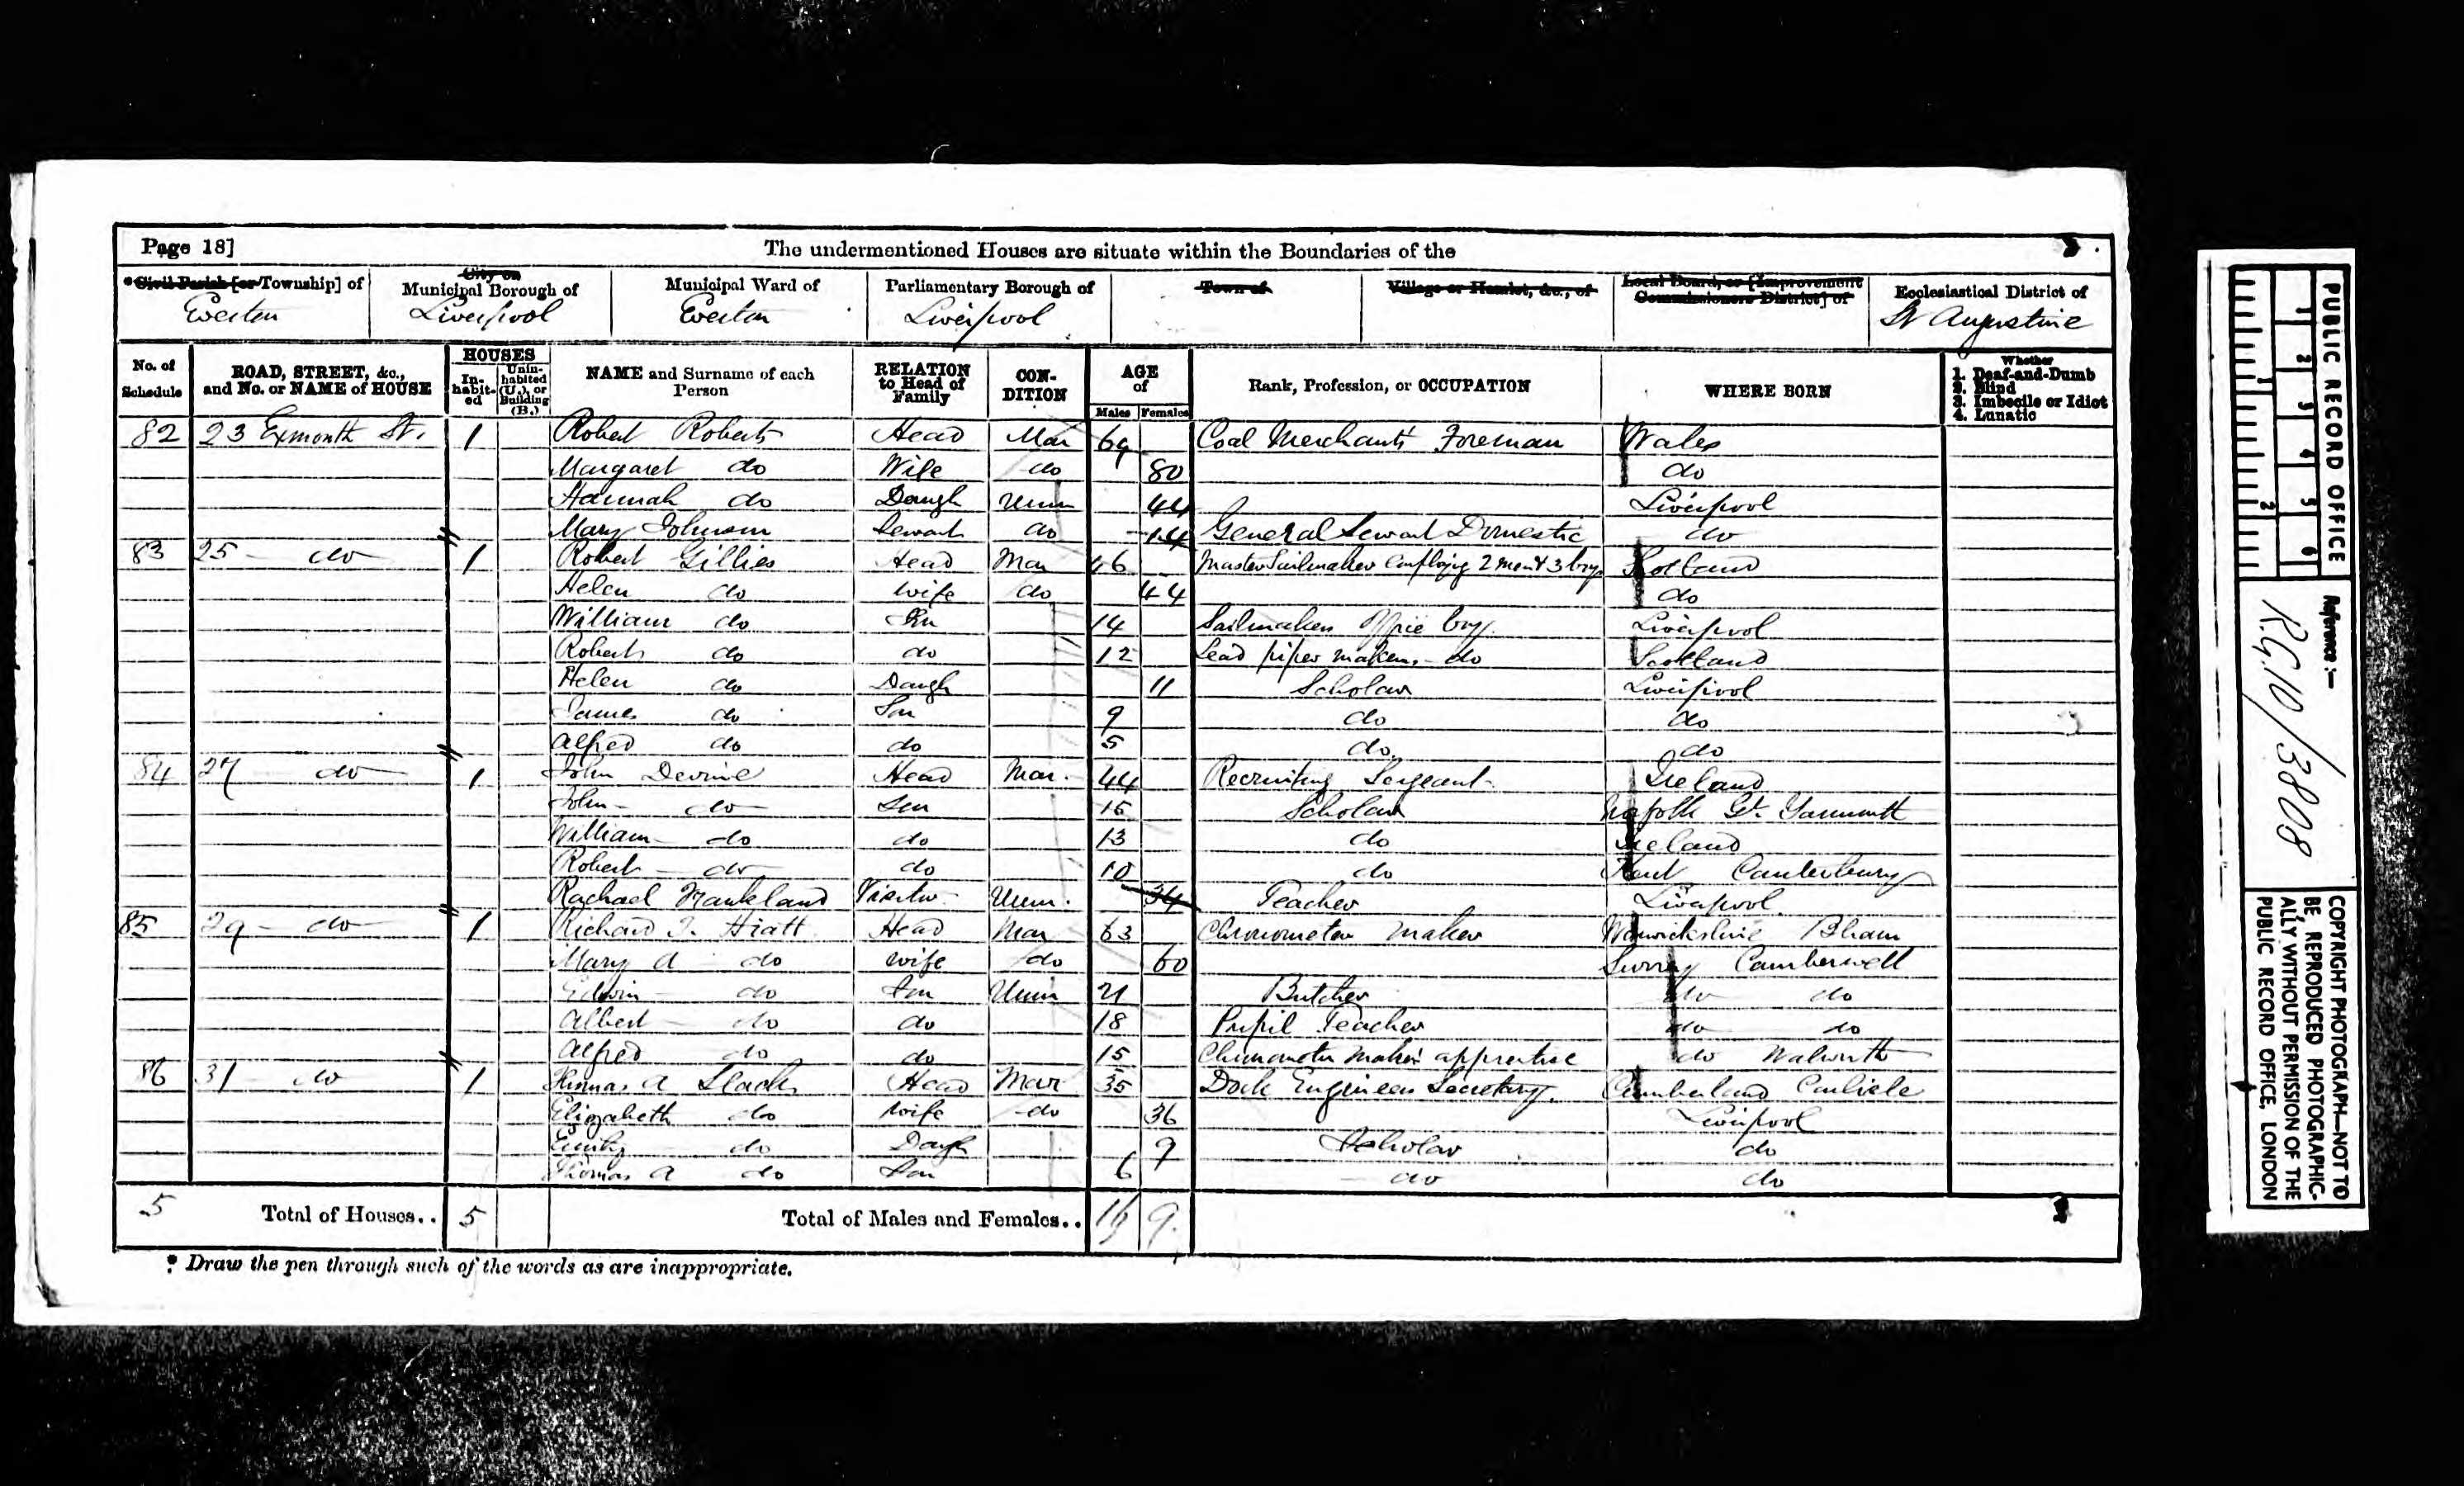 Page 18]
The undermentioned Houses are situate within the Boundaries of the
*Civil Parish [or Township] of Everton
City or Municipal Borough of Liverpool
Municipal Ward of Everton
Parliamentary Borough of Liverpool
Town of
Village or Hamlet, &c., of
Local Board, or [Improvement Commissioners District] of
Ecclesiastical District of St Augustine
No. of Schedule
ROAD, STREET, &c., and No. or NAME of HOUSE
HOUSES
In-habit-ed
Unin-habited (U.), or Building (B.)
NAME and Surname of each Person
RELATION to Head of Family
CON-DITION
AGE of
Males Females
Rank, Profession, or OCCUPATION
WHERE BORN
Whether
1. Deaf-and-Dumb
2. Blind
3. Imbecile or Idiot
4. Lunatic
82 23 Exmouth St. 1 Robert Roberts Head Mar 69 Coal Merchants Foreman Wales
Margaret do Wife do 80 do
Hannah do Daugh Unm 44 Liverpool
Mary Johnson Servant do 14 General Servant Domestic do
83 25 do 1 Robert Gillies Head Mar 46 Master Sailmaker Employing 2 men & 3 boys Scotland
Helen do wife do 44 do
William do Son 14 Sailmakers Office boy Liverpool
Robert do do 12 Lead pipe makers do Scotland
Helen do Daugh 11 Scholar Liverpool
James do Son 9 do do
Alfred do do 5 do do
84 27 do 1 John Devine Head Mar. 44 Recruiting Sergeant Ireland
John do Son 15 Scholar Norfolk Gt. Yarmouth
William do do 13 do Ireland
Robert do do 10 do Kent Canterbury
Rachael Frankland Visitor Unm. 34 Teacher Liverpool
85 29 do 1 Richard J. Hiatt Head Mar 63 Chronometer Maker Warwickshire Bham
Mary A do wife do 60 Surrey Camberwell
Edwin do Son Unm 21 Butcher do do
Albert do do 18 Pupil Teacher do do
Alfred do do 15 Chronometer Maker apprentice do Walworth
86 31 do 1 Thomas A Slack Head Mar 35 Dock Engineers Secretary Cumberland Carlisle
Elizabeth do wife do 36 Liverpool
Emily do Daugh 9 Scholar do
Thomas A do Son 6 do do
5 Total of Houses.. 5 Total of Males and Females.. 16 9
* Draw the pen through such of the words as are inappropriate.
PUBLIC RECORD OFFICE
1 2 3 4 5 6
1 2
Reference:—
R.G. 10/3808
COPYRIGHT PHOTOGRAPH—NOT TO
BE REPRODUCED PHOTOGRAPHIC-
ALLY WITHOUT PERMISSION OF THE
PUBLIC RECORD OFFICE, LONDON